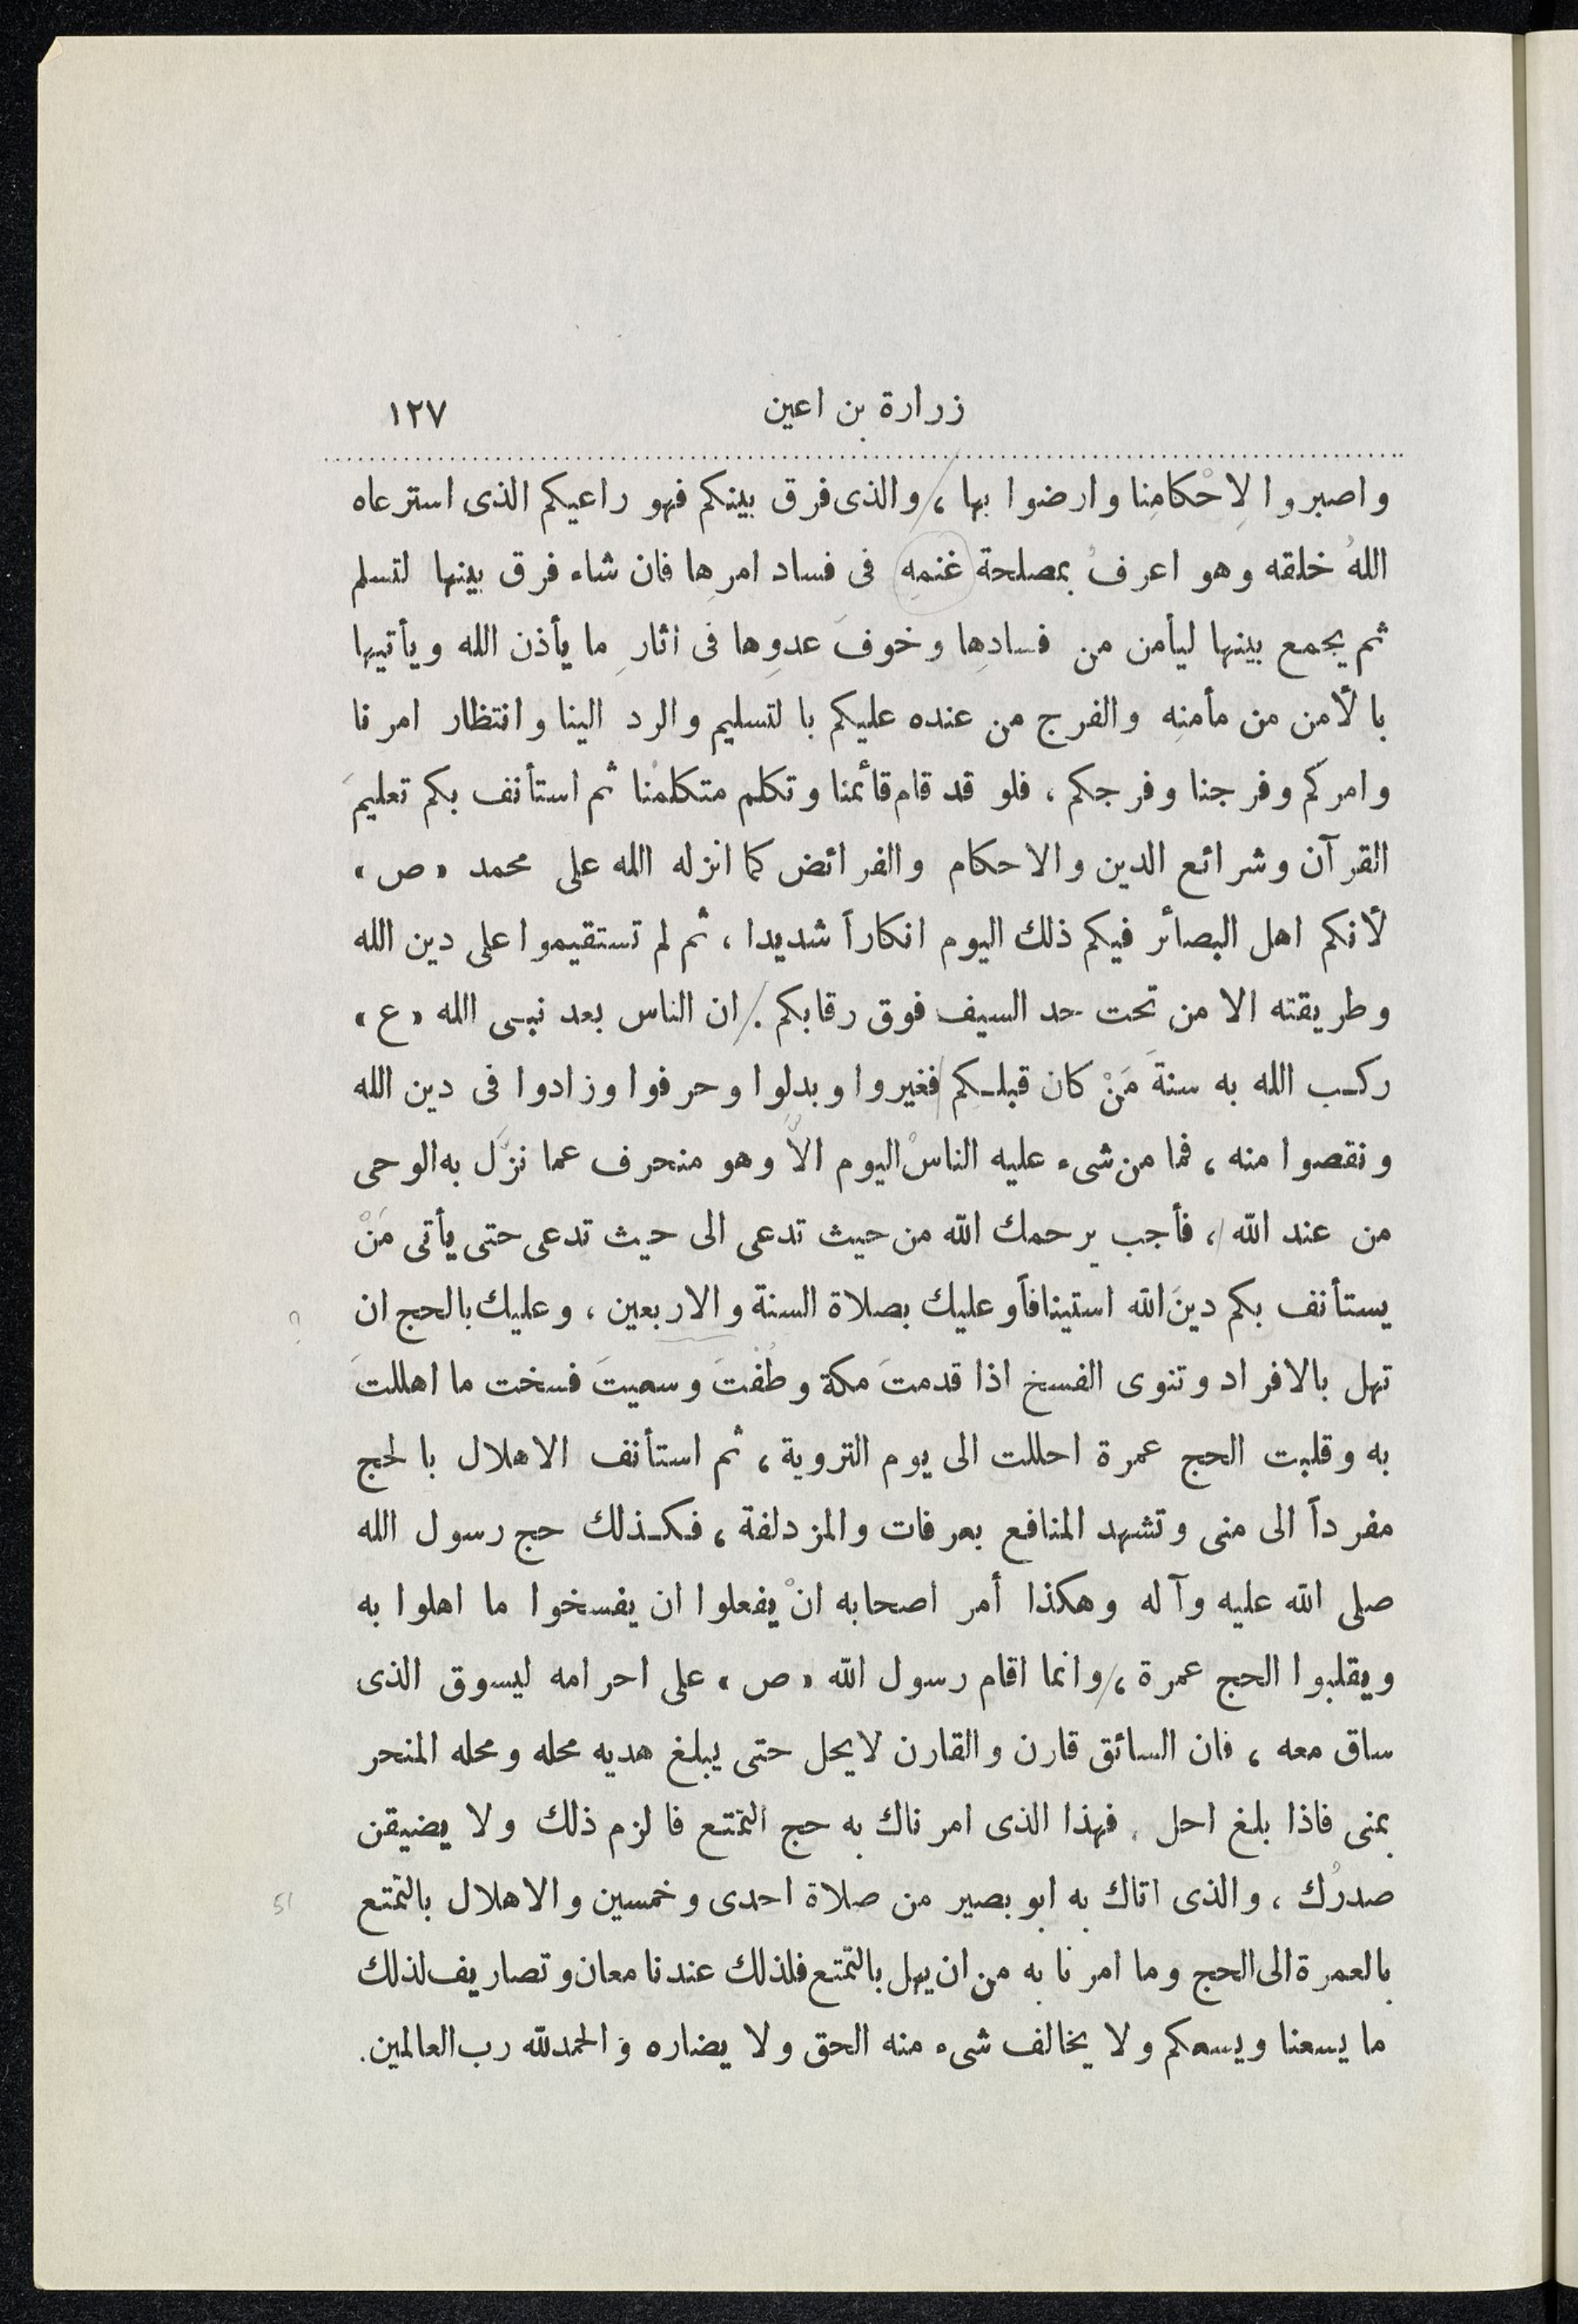 زرارة بن اعين ١٢٧
واصبروا لِاحْكامِنا وارضوا بها ، والذى فرق بينكم فهو راعيكم الذى استرعاه
اللهُ خلقه وهو اعرفُ بمصلحة غنمِهِ فى فساد امرِها فان شاء فرق بينها لتسلم
ثم يجمع بينها ليأمن من فسادِها وخوفَ عدوِها فى اثارِ ما يأذن الله ويأتيها
بالأمن من مأمنِه والفرج من عنده عليكم بالتسليم والرد الينا وانتظار امرنا
وامركم وفرجنا وفرجكم ، فلو قد قام قائمُنا وتكلم متكلمُنا ثم استأنف بكم تعليمَ
القرآن وشرائع الدين والاحكام والفرائض كما انزله الله على محمد «ص»
لأنكم اهل البصائر فيكم ذلك اليوم انكاراً شديدا ، ثم لم تستقيموا على دين الله
وطريقته الا من تحت حد السيف فوق رقابكم . ان الناس بعد نبى الله «ع»
ركب الله به سنةَ مَنْ كان قبلكم فغيروا وبدلوا وحرفوا وزادوا فى دين الله
ونقصوا منه ، فما من شىء عليه الناسْ اليوم الاّ وهو منحرف عما نزّل به الوحى
من عند الله ، فأجب يرحمك الله من حيث تدعى الى حيث تدعى حتى يأتى مَنْ
يستأنف بكم دينَ الله استينافاً وعليك بصلاة السنة والاربعين ، وعليك بالحج ان ?
تهل بالافراد وتنوى الفسخ اذا قدمتَ مكة وطُفْتَ وسعيتَ فسخت ما اهللتَ
به وقلبت الحج عمرة احللت الى يوم التروية ، ثم استأنف الاهلال بالحج
مفرداً الى منى وتشهد المنافع بعرفات والمزدلفة ، فكذلك حج رسول الله
صلى الله عليه وآله وهكذا أمر اصحابه انْ يفعلوا ان يفسخوا ما اهلوا به
ويقلبوا الحج عمرة ، وانما اقام رسول الله «ص» على احرامه ليسوق الذى
ساق معه ، فان السائق قارن والقارن لا يحل حتى يبلغ هديه محله ومحله المنحر
بمنى فاذا بلغ احل . فهذا الذى امرناك به حج التمتع فالزم ذلك ولا يضيقن
صدرُك ، والذى اتاك به ابو بصير من صلاة احدى وخمسين والاهلال بالتمتع 51
بالعمرة الى الحج وما امرنا به من ان يهل بالتمتع فلذلك عندنا معان وتصاريف لذلك
ما يسعنا ويسعكم ولا يخالف شىء منه الحق ولا يضاره والحمدلله رب العالمين.